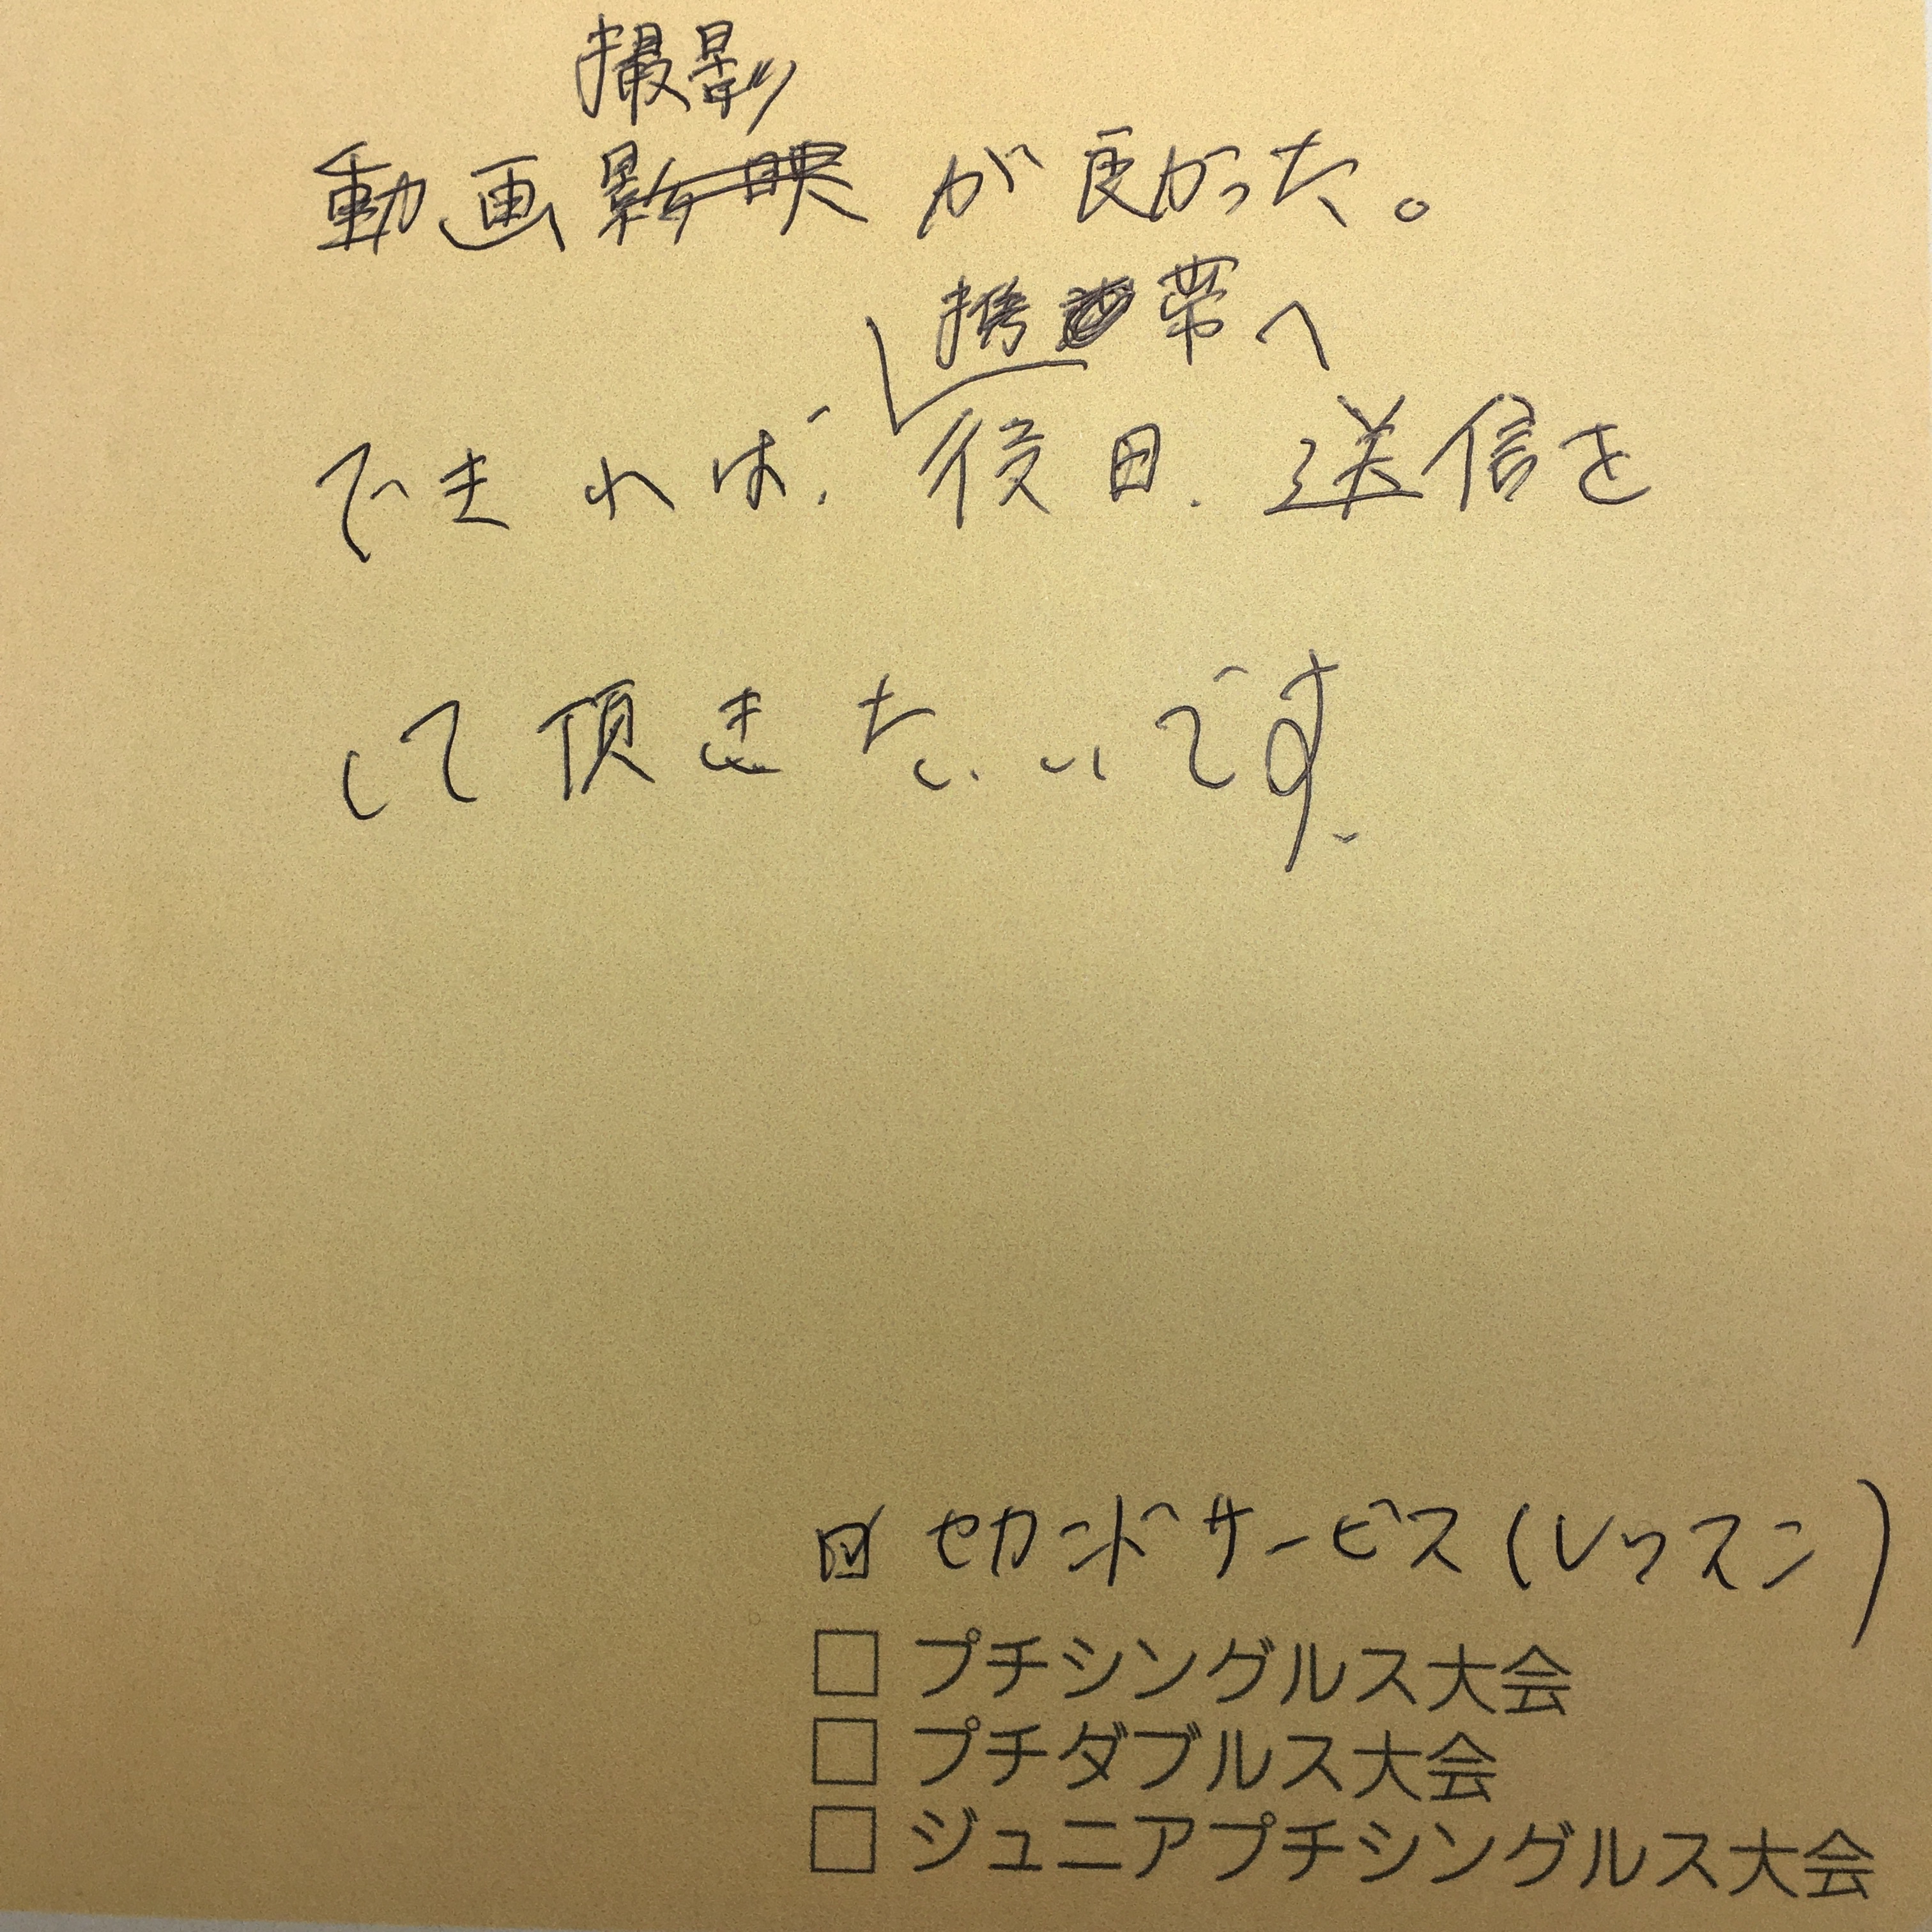 撮影
動画影映が良かった。
携帯へ
できれば、後日、送信を
して頂きたいです。
☑ セカンドサービス(レッスン)
□ プチシングルス大会
□ プチダブルス大会
□ ジュニアプチシングルス大会